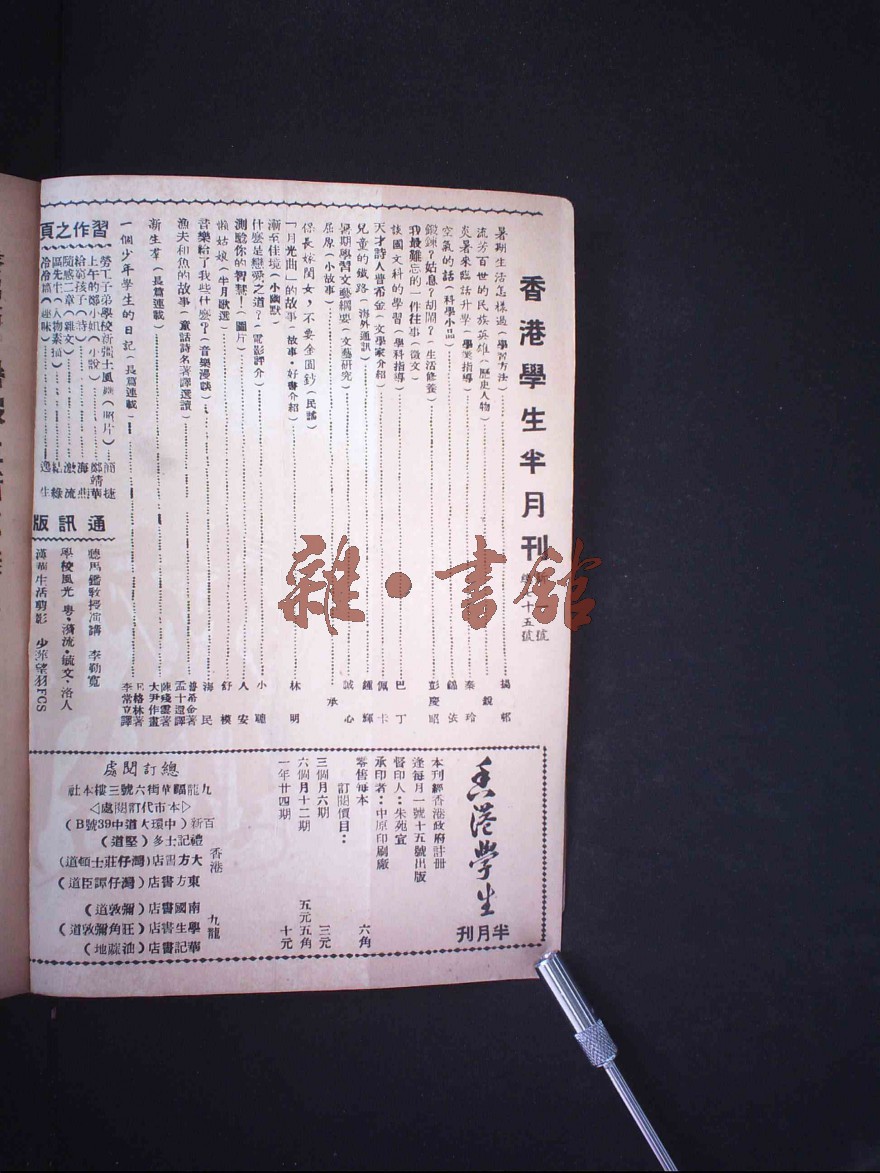 香港學生半月刊
新一號
十五號
暑期生活怎樣過(學習方法)……揚邨
流芳百世的民族英雄(歷史人物)……銳
炎暑來臨話升學(學業指導)……秦玲
空氣的話(科學小品)……依
鍛鍊?姑息?胡鬧?(生活修養)……彭慶昭
我最難忘的一件往事(徵文)
談國文科的學習(學科指導)……巴丁
天才詩人普希金(文學家介紹)……佩卡
兒童的鐵路(海外通訊)……鍾輝
暑期學習文藝綱要(文藝研究)……誠心
屈原(小故事)……承
保長嫁閨女,不要金圓鈔(民謠)
「月光曲」的故事(故事·好書介紹)……林明
漸至佳境(小幽默)
什麼是戀愛之道?(電影評介)……小聰
測驗你的智慧!(圖片)……人安
懶姑娘(半月歌選)……舒模
音樂給了我些什麼?(音樂漫談)……海民
漁夫和魚的故事(童話詩名著譯選讀)……普希金著 孟十還譯
新生羣(長篇連載)……陳殘雲著 大尹作畫
一個少年學生的日記(長篇連載)……E格林著 李常立譯
習作之頁
勞工子弟學校新疆土風舞(照片)……簡捷
上午的鄭小姐(小說)……鄭靖華
給窮孩子(詩)……海燕
隨感二章(雜文)……激流
區先生(人物素描)……結綠
冷冷篇(趣味)……逸生
通訊版
聽馬鑑教授演講 李勤寬
學校風光 粵·濟流·毓文·洛人
漢華生活剪影 少萍
香港學生
半月刊
本刊經香港政府註冊
逢每月一號十五號出版
督印人:朱苑宜
承印者:中原印刷廠
零售每本 六角
訂閱價目:
三個月六期 三元
六個月十二期 五元五角
一年廿四期 十元
總訂閱處
九龍福華街六號三樓本社
◁本市代訂閱處▷
香港
百新(中環大道中39號B)
禮記士多(堅道)
大方書店(灣仔莊士頓道)
東方書店(灣仔譚臣道)
九龍
南國書店(彌敦道)
學生書店(旺角彌敦道)
華記書店(油蔴地)
雜·書館